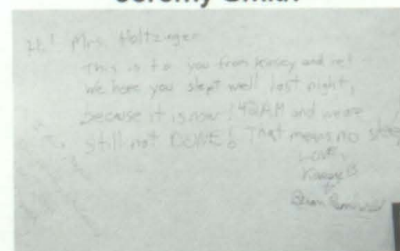 Jeremy Smith
Hi! Mrs. Holtzinger
This is to you from Kasey and me!
We hope you slept well last night,
because it is now 1:42AM and we are
still not DONE! That means no sleep
LOVE,